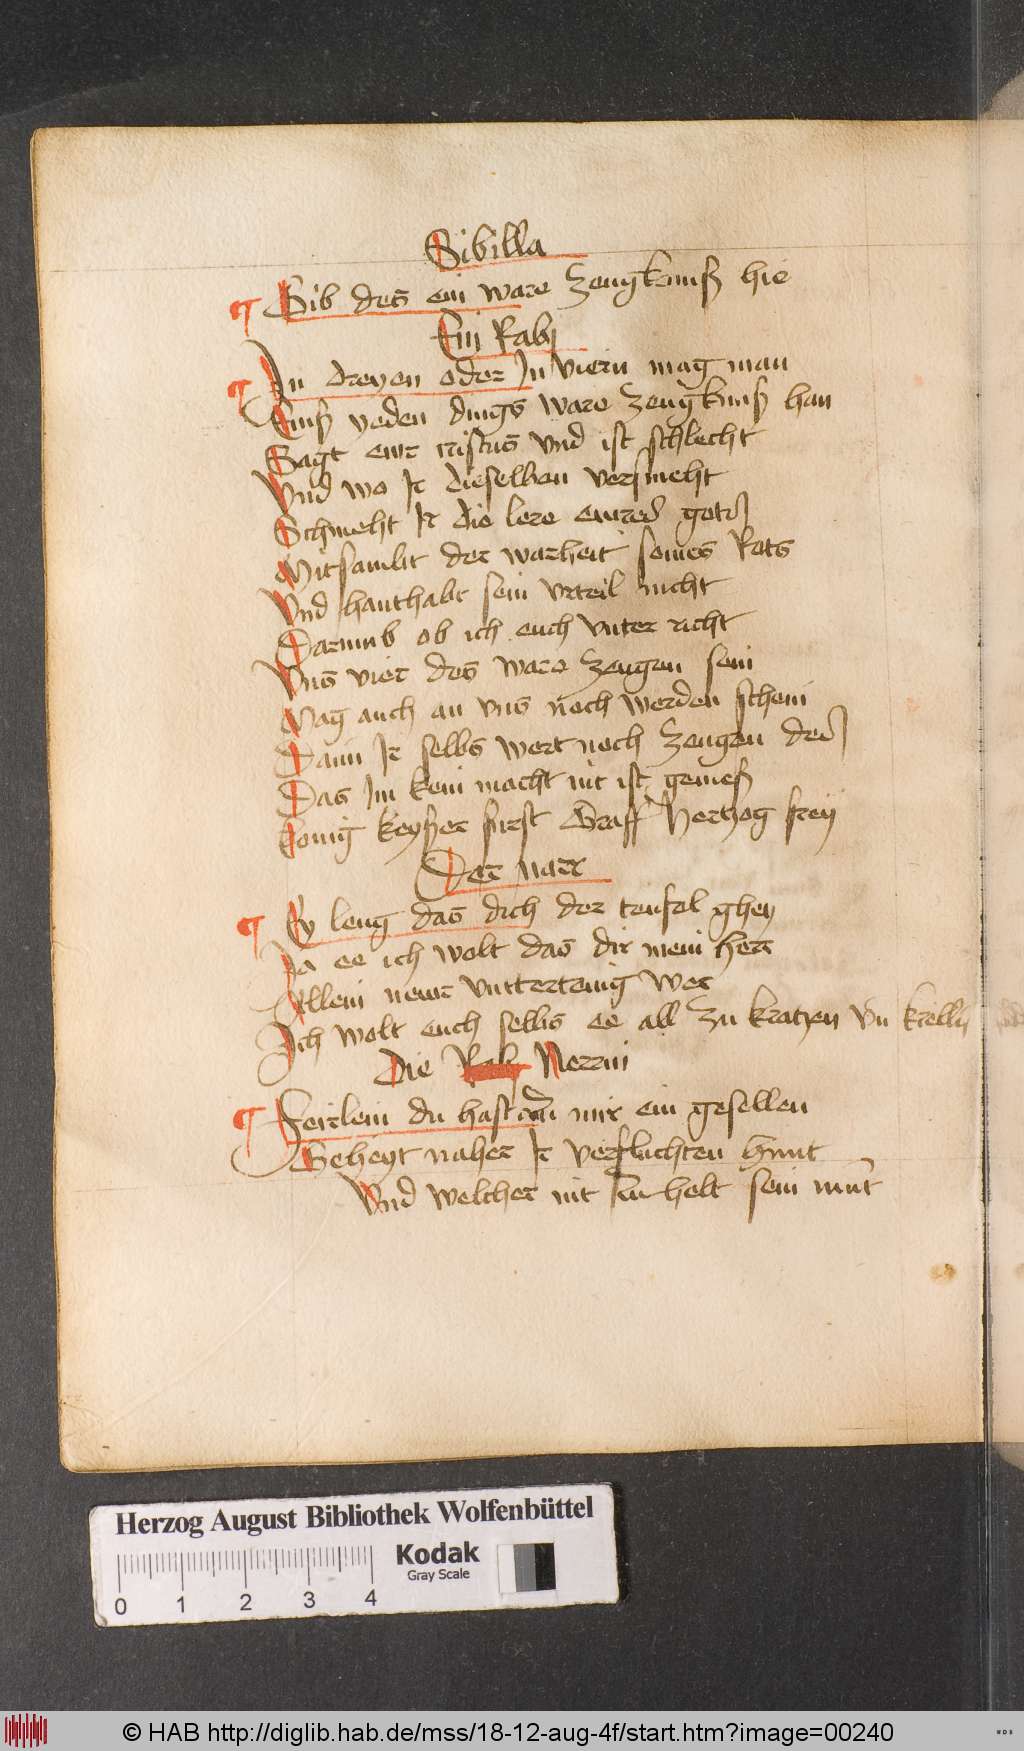 Sibilla
Gib des ein ware zeugknuß hie
Ein Rabi
In dreyen oder In viern mag man
Eins yeden dings ware zeugknuß han
Sagt ewr cristus vnd ist schlecht
Vnd wo Ir dieselben versmeht
Schmeht Ir die lere ewres gots
Mitsambt der warheit seines Rots
Vnd hanthabt sein vrteil nicht
Darumb ob ich euch vnter richt
Vns vier des ware zeugen sein
Mag auch an vns noch werden schein
Dann Ir selbs wert noch zeugen des
Das Im kein macht nit ist gemeß
Konig keyßer furst Graff Hertzog freÿ
Der narr
Ey leug das dich der teufel gheÿ
Ja ee ich wolt das dir mein herr
Allein newr vntterteinig wer
Ich wolt euch selbs ee all zu kratzen vn krelln
Die Nerrin
Feirlein du hast an mir ein gesellen
Geheyt naher Ir verfluchten hunt
Vnd welcher nit Im helt sein munt
Herzog August Bibliothek Wolfenbüttel
Kodak
Gray Scale
0 1 2 3 4
© HAB http://diglib.hab.de/mss/18-12-aug-4f/start.htm?image=00240